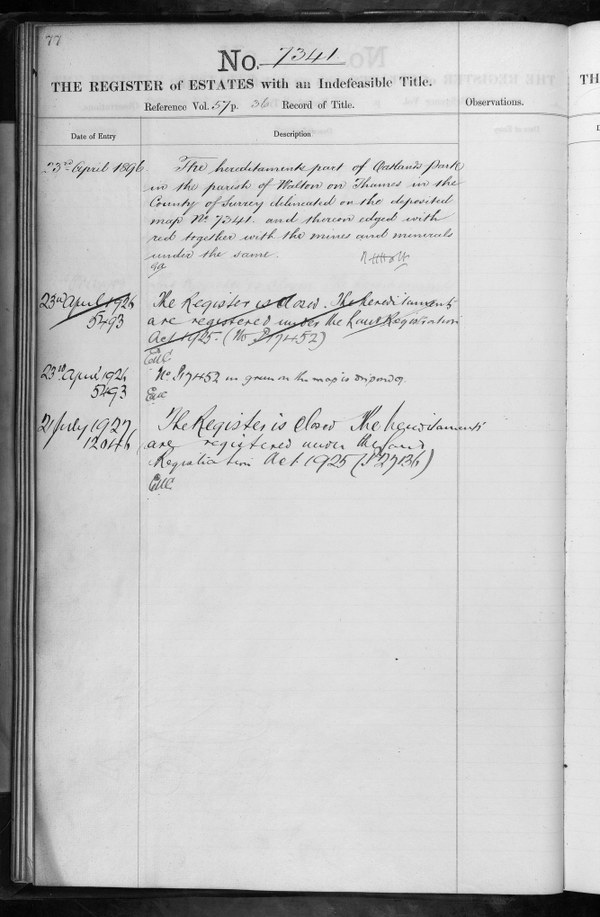 77
No. 7341
THE REGISTER of ESTATES with an Indefeasible Title.
Reference Vol. 57 p. 36 Record of Title.
Observations.
Date of Entry
Description
23rd April 1896
The hereditaments part of Oatlands Park
in the parish of Walton on Thames in the
County of Surrey delineated on the deposited
map No. 7341. and thereon edged with
red together with the mines and minerals
under the same.
23rd April 1926
5493
The Register is closed. The hereditaments
are registered under the Land Registration
Act 1925. (No P17452)
EMC
23rd April 1926
5493
No. P17452 in green on the map is
EMC
21 July 1927
12046
The Register is closed The hereditaments
are registered under the Land
Registration Act 1925 (P27136)
EMC
TH